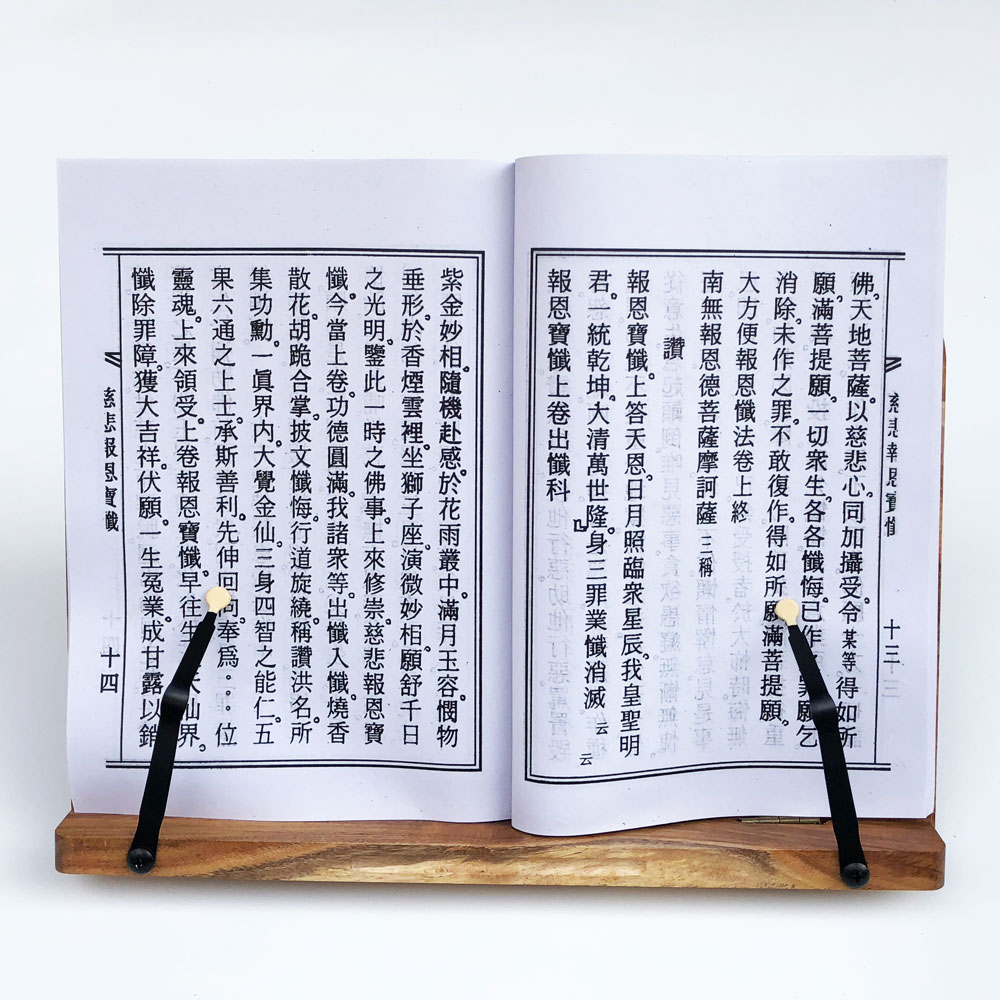 佛。天地菩薩。以慈悲心。同加攝受。令某等。得如所
願。滿菩提願。一切衆生。各各懺悔。已作 罪。願乞
消除。未作之罪。不敢復作。得如所願。滿菩提願。
大方便報恩懺法卷上終
南無報恩德菩薩摩訶薩 三稱
讚
報恩寶懺。上答天恩。日月照臨衆星辰。我皇聖明
君。一統乾坤。大清萬世隆。身三罪業懺消滅 云云
報恩寶懺上卷出懺科
慈悲報恩寶懺
十三
紫金妙相。隨機赴感。於花雨叢中。滿月玉容。憫物
垂形。於香煙雲裡。坐獅子座。演微妙相。願舒千日
之光明。鑒此一時之佛事。上來修崇。慈悲報恩寶
懺。今當上卷。功德圓滿。我諸衆等。出懺入懺。燒香
散花。胡跪合掌。披文懺悔。行道旋繞。稱讚洪名。所
集功勳。一眞界內。大覺金仙。三身四智之能仁。五
果六通之上士。承斯善利。先伸回向。奉爲：：位
靈魂。上來領受。上卷報恩寶懺。早往生 天仙界。
懺除罪障。獲大吉祥。伏願。一生冤業。成甘露以銷
慈悲報恩寶懺
十四